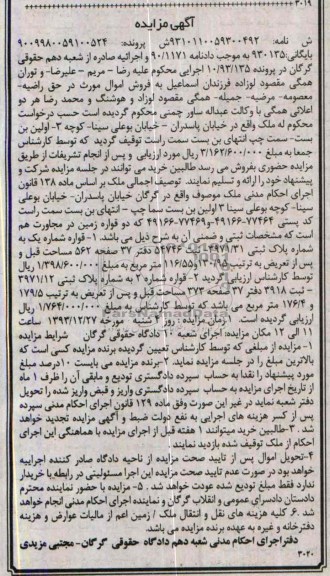 ۳۰۱۹
آگهی مزایده
ش نامه: ۹۳۱۰۱۱۰۰۵۹۳۰۰۴۹۲ ش پرونده: ۹۰۰۹۹۸۰۰۵۹۱۰۰۵۲۴
بایگانی: ۹۳۰۱۳۵ به موجب دادنامه ۹۰/۱۱۷۱ و اجرائیه صادره از شعبه دهم حقوقی
گرگان در پرونده ۱۰/۹۳/۱۳۵ اجرایی محکوم علیه رضا - مریم - علیرضا - و توران
همگی مقصود لوزاده فرزندان اسماعیل به فروش اموال موروث در حق راضیه-
معصومه- مرضیه- جمیله- همگی مقصود لوزاد و هوشنگ و محمد رضا هر دو
اعلائی همگی با وکالت عبداله ساور چمنی محکوم گردیده است حسب درخواست
محکوم له ملک واقع در خیابان پاسدران - خیابان بوعلی سینا- کوچه ۳- اولین بن
بست- سمت چپ انتهای بن بست سمت راست توقیف گردید که توسط کارشناس
جمعا به مبلغ ۳/۱۶۲/۶۰۰/۰۰۰ ریال مورد ارزیابی و پس از انجام تشریفات از طریق
مزایده حضوری بفروش می رسد طالبین خرید می توانند در جلسه مزایده شرکت و
پیشنهاد خود را ارائه و تسلیم نمایند. توصیف اجمالی ملک بر اساس ماده ۱۳۸ قانون
اجرای احکام مدنی ملک موصوف واقع در گرگان خیابان پاسدران- خیابان بوعلی
سینا- کوچه بوعلی سینا ۳ اولین بن بست سما چپ - انتهای بن بست سمت راست
کد پستی ۷۷۴۶۴-۴۹۱۶۶ و ۷۷۴۶۹-۴۹۱۶۶ که دو قواره زمین در مجاورت هم
است که مشخصات ثبتی و ضمنی آن به شرح ذیل می باشد. ۱- قواره شماره یک به
شماره پلاک ثبتی ۳۹۷۱/۳۱ - ۵۴۷۴۶ دفتر ۳۷ صفحه ۵۶۲ مساحت قبل و
پس از تعریض به ترتیب ۱۳۰/۹۵ و ۱۱۶/۵۵ متر مربع به مبلغ ۱/۳۹۸/۶۰۰/۰۰۰ ریال
توسط کارشناس ارزیابی گردید ۲- قواره شماره ۲ به شماره پلاک ثبتی ۳۹۷۱/۱۲
- ثبت ۳۹۱۸ دفتر ۳۷ صفحه ۳۷۳ مساحت قبل و پس از تعریض به ترتیب ۱۷۹/۵
و ۱۷۶/۴ متر مربع می باشد که توسط کارشناس به مبلغ ۱/۷۶۴/۰۰۰/۰۰۰ ریال
ارزیابی گردیده است. ۱-زمان مزایده: روز شنبه مورخه ۱۳۹۳/۱۲/۲۷ ساعت
۱۱ الی ۱۲ مکان مزایده: اجرای شعبه ۱۰ دادگاه حقوقی گرگان شرایط مزایده
۱- مزایده از مبلغی که توسط کارشناس تعیین گردیده برنده مزایده کسی است که
بالاترین مبلغ را در جلسه مزایده نماید. ۲-برنده مزایده می بایست ۱۰درصد مبلغ
مورد پیشنهاد را نقدا به حساب سپرده دادگستری تودیع و مابقی آن را ظرف ۱ ماه
از تاریخ اجرای مزایده به حساب سپرده دادگستری واریز و قبض واریز شده را تحویل
دفتر شعبه نماید در غیر این صورت وفق ماده ۱۲۹ قانون اجرای احکام مدنی سپرده
پس از کسر هزینه های اجرایی به نفع دولت ضبط و آگهی مزایده تجدید خواهد
شد . ۳-طالبین خرید میتوانند ۱ هفته قبل از اجرای مزایده با هماهنگی این اجرای
احکام از ملک توقیف شده بازدید نمایند .
۴-تحویل اموال پس از تایید صحت مزایده از ناحیه دادگاه صادر کننده اجراییه
خواهد بود در صورت عدم تایید صحت مزایده این اجرا مسئولیتی در رابطه با خریدار
ندارد فقط مبلغ تودیع شده عودت خواهد شد . ۵- مزایده با حضور نماینده محترم
دادستان دادسرای عمومی و انقلاب گرگان و نماینده اجرای احکام مدنی انجام خواهد
شد .۶. کلیه هزینه های نقل و انتقال ملک / زمین اعم از مالیات عوارض و هزینه
دفترخانه و غیره به عهده برنده مزایده می باشد.
دفتر اجرای احکام مدنی شعبه دهم دادگاه حقوقی گرگان- مجتبی مزیدی
۳۰۲۰